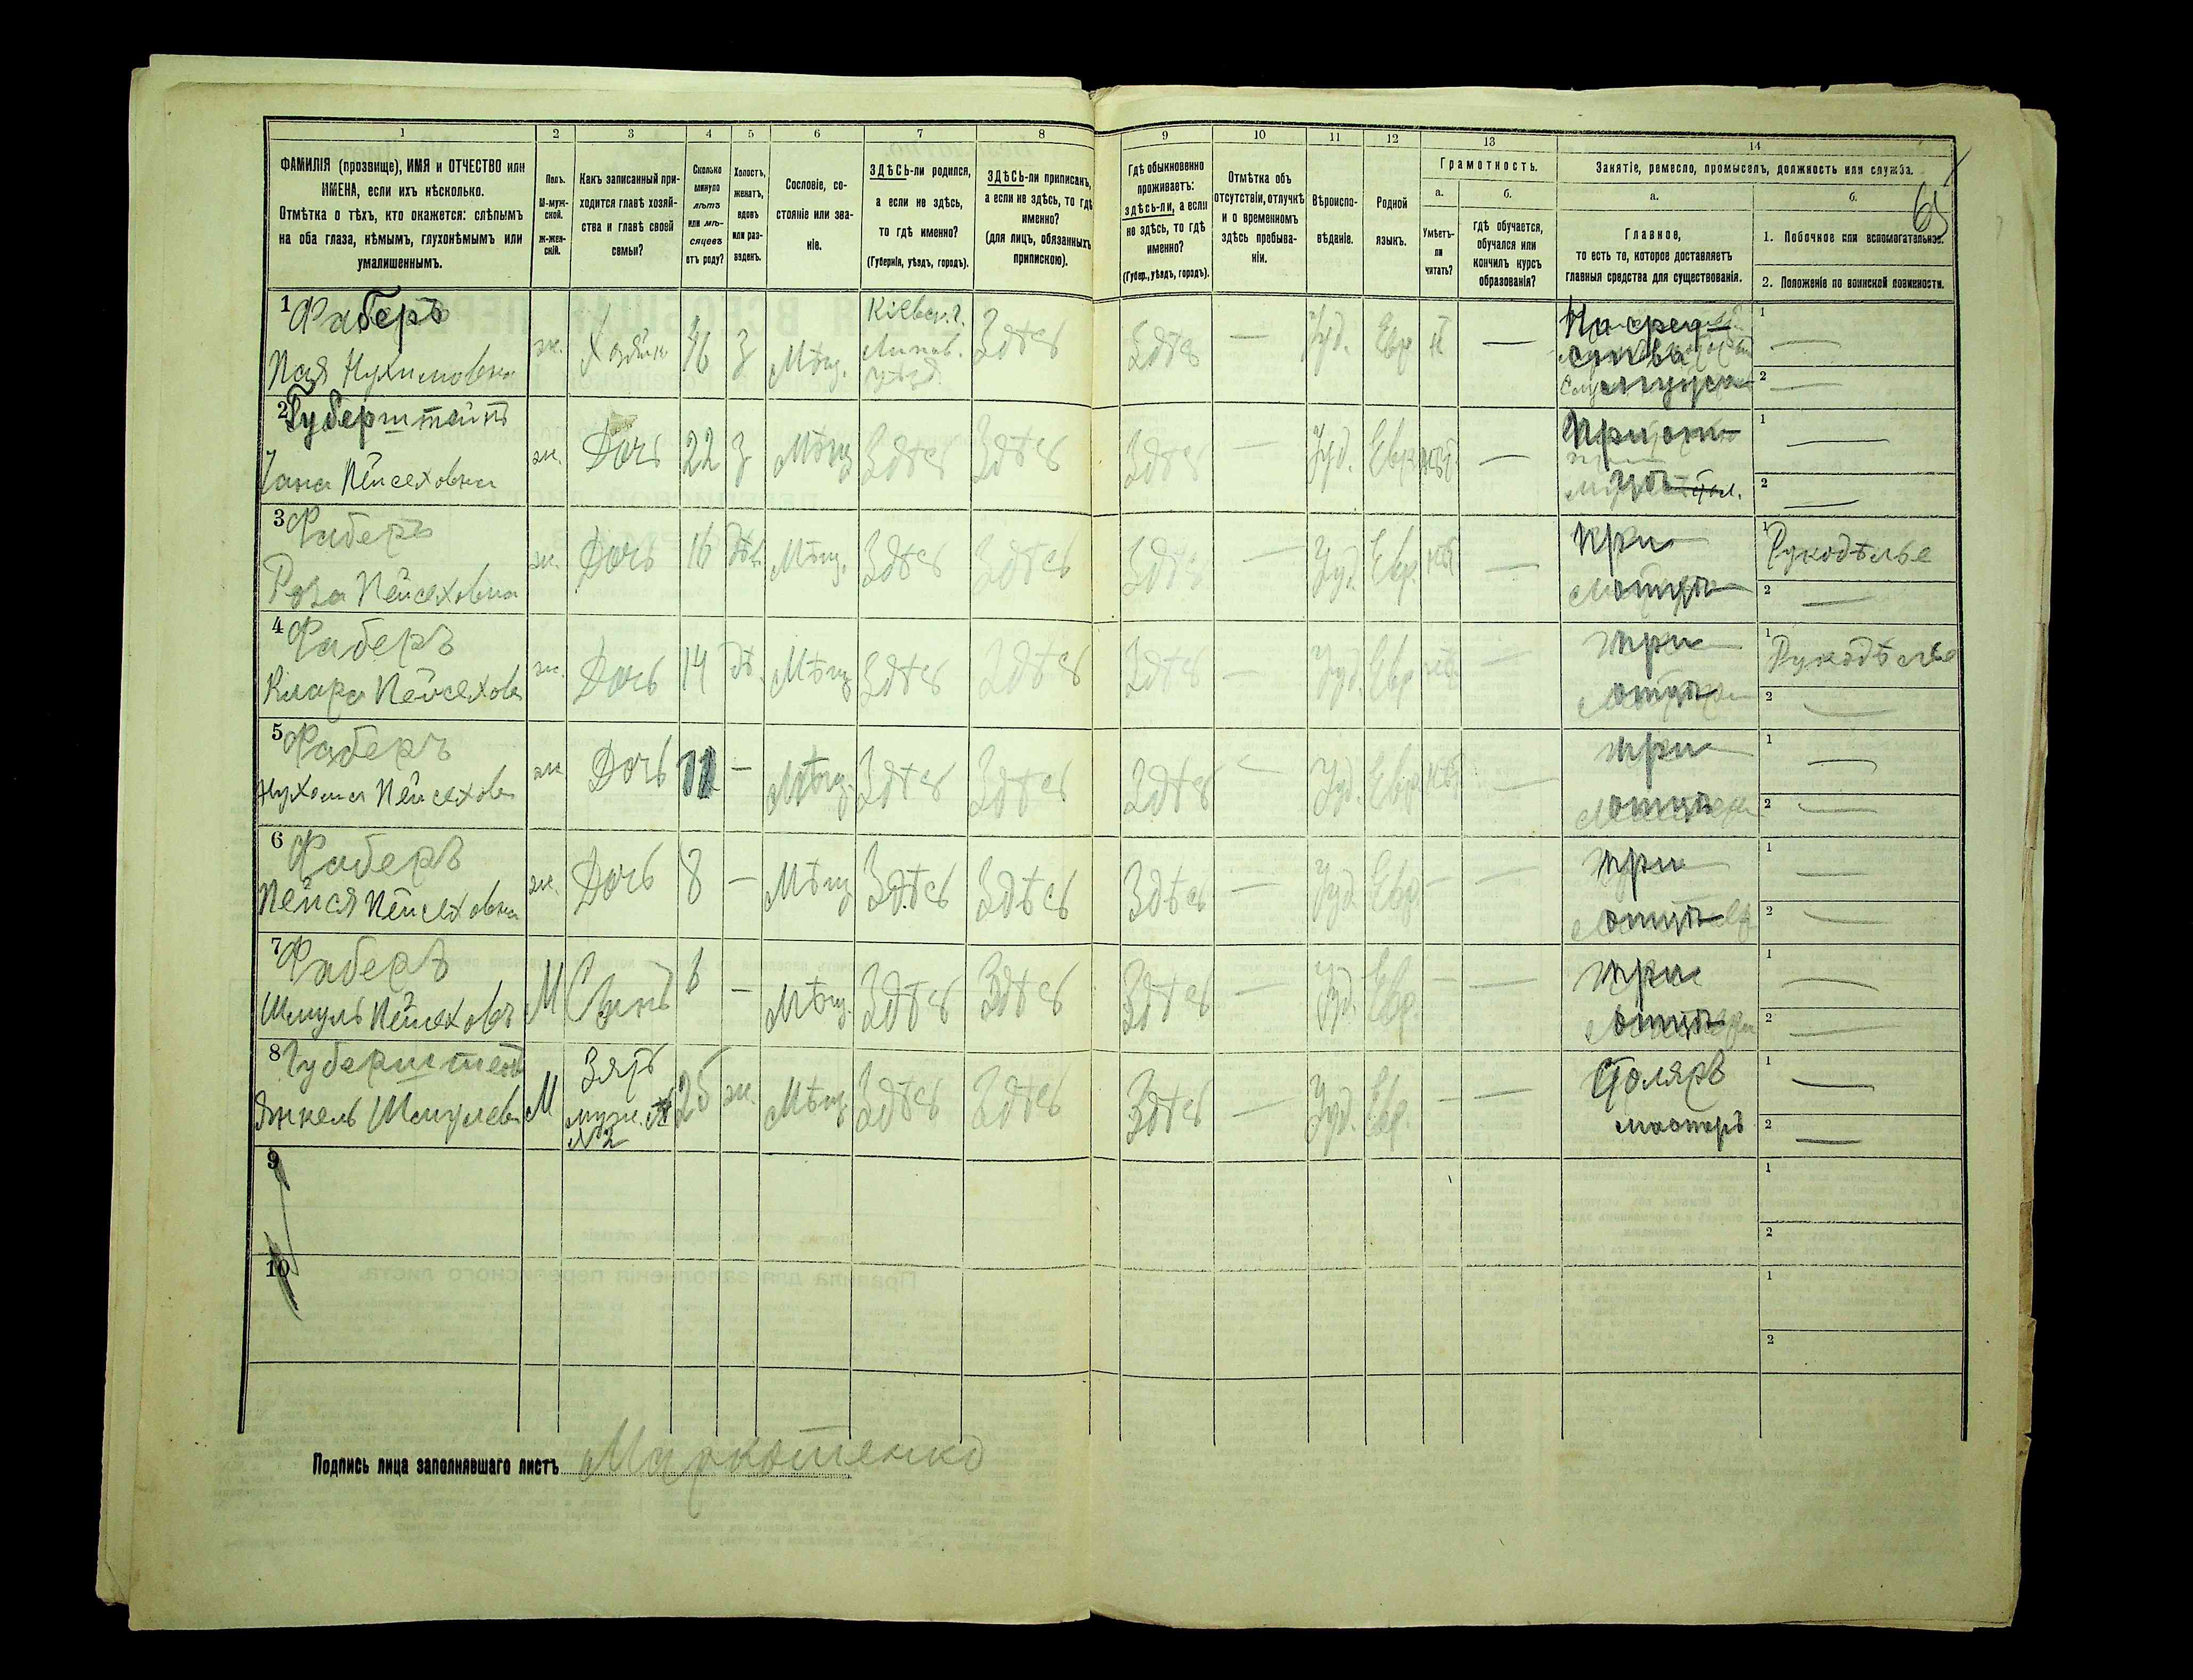 1 2 3 4 5 6 7 8 9 10 11 12 13 14
ФАМИЛІЯ (прозвище), ИМЯ и ОТЧЕСТВО или
ИМЕНА, если ихъ нѣсколько.
Отмѣтка о тѣхъ, кто окажется: слѣпымъ
на оба глаза, нѣмымъ, глухонѣмымъ или
умалишеннымъ.
Полъ.
М-муж-
ской.
ж-жен-
скій.
Какъ записанный при-
ходится главѣ хозяй-
ства и главѣ своей
семьи?
Сколько
минуло
лѣтъ
или мѣ-
сяцевъ
отъ роду?
Холостъ,
женатъ,
вдовъ
или раз-
веденъ.
Сословіе, со-
стояніе или зва-
ніе.
ЗДѢСЬ-ли родился,
а если не здѣсь,
то гдѣ именно?
(Губернія, уѣздъ, городъ).
ЗДѢСЬ-ли приписанъ,
а если не здѣсь, то гдѣ
именно?
(для лицъ, обязанныхъ
припискою).
Гдѣ обыкновенно
проживаетъ:
здѣсь-ли, а если
не здѣсь, то гдѣ
именно?
(Губер., уѣздъ, городъ).
Отмѣтка объ
отсутствіи, отлучкѣ
и о временномъ
здѣсь пребыва-
ніи.
Вѣроиспо-
вѣданіе.
Родной
языкъ.
Грамотность.
а.
Умѣетъ-
ли
читать?
б.
Гдѣ обучается,
обучался или
кончилъ курсъ
образованія?
Занятіе, ремесло, промыселъ, должность или служба.
а.
Главное,
то есть то, которое доставляетъ
главныя средства для существованія.
б.
65
1. Побочное или вспомогательное.
2. Положеніе по воинской повинности.
1 Фаберъ
Киевск. г.
На сред-
1
Нухимовна ж. Хозяйка З Мѣщ. Липов. Здѣсь Здѣсь — Іуд. Евр — ства —
уѣзд. 2 —
2 Губерштейнъ
При от- 1 —
Хана Пейсеховна ж. Дочь 22 З Мѣщ Здѣсь Здѣсь Здѣсь — Іуд. Евр —
цѣ 2 —
3 Фаберъ
При 1 Рукодѣлье
Роза Пейсеховна ж. Дочь 16 Дѣв. Мѣщ. Здѣсь Здѣсь Здѣсь — Іуд. Евр. —
отцѣ 2 —
4 Фаберъ
При 1 Рукодѣлье
Клара Пейсехов ж. Дочь 14 Дѣ. Мѣщ Здѣсь Здѣсь Здѣсь — Іуд. Евр —
отцѣ 2 —
5 Фаберъ
При 1 —
Пейсехов ж Дочь 11 — Мѣщ. Здѣсь Здѣсь Здѣсь — Іуд. Евр. —
отцѣ 2 —
6 Фаберъ
При 1 —
Пейся Пейсеховна ж. Дочь 8 — Мѣщ Здѣсь Здѣсь Здѣсь — Іуд. Евр. — —
отцѣ 2 —
7 Фаберъ
При 1 —
Шмуль Пейсеховъ М Сынъ 6 — Мѣщ. Здѣсь Здѣсь Здѣсь — Іуд. Евр. — —
отцѣ 2 —
8 Губерштейн
Зять Столяръ 1 —
Янкель Шмулев М муж. 25 ж. Мѣщ Здѣсь Здѣсь Здѣсь — Іуд. Евр. — —
№ 2 мастеръ 2 —
9 1
2
10 1
2
Подпись лица заполнявшаго листъ